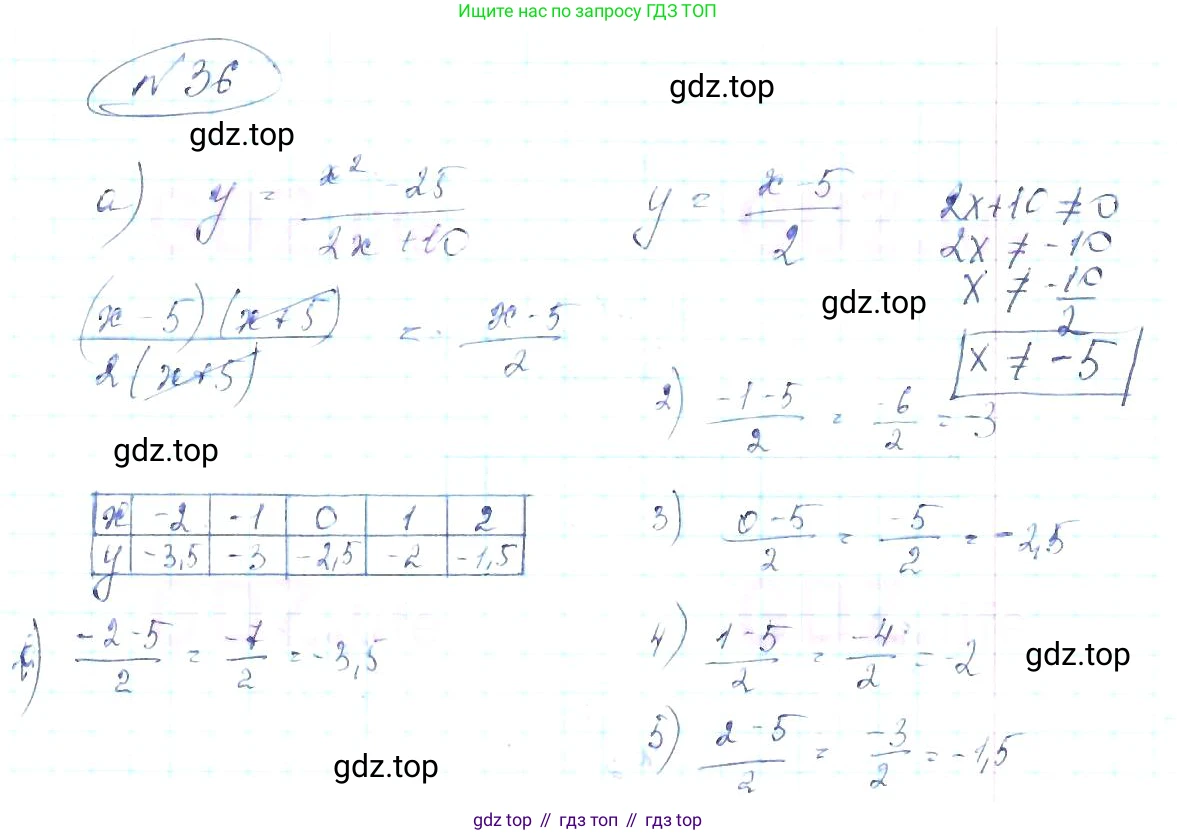 Ищите нас по запросу ГДЗ ТОП
№ 36
gdz.top
gdz.top
а) y = (x² - 25)/(2x + 10)
(x - 5)(x + 5)/2(x + 5) = (x - 5)/2
y = (x - 5)/2
2x + 10 ≠ 0
2x ≠ -10
x ≠ -10/2
x ≠ -5
gdz.top
gdz.top
x -2 -1 0 1 2
y -3,5 -3 -2,5 -2 -1,5
1) (-2 - 5)/2 = -7/2 = -3,5
2) (-1 - 5)/2 = -6/2 = -3
3) (0 - 5)/2 = -5/2 = -2,5
4) (1 - 5)/2 = -4/2 = -2
gdz.top
5) (2 - 5)/2 = -3/2 = -1,5
gdz.top
gdz top // гдз топ // gdz top